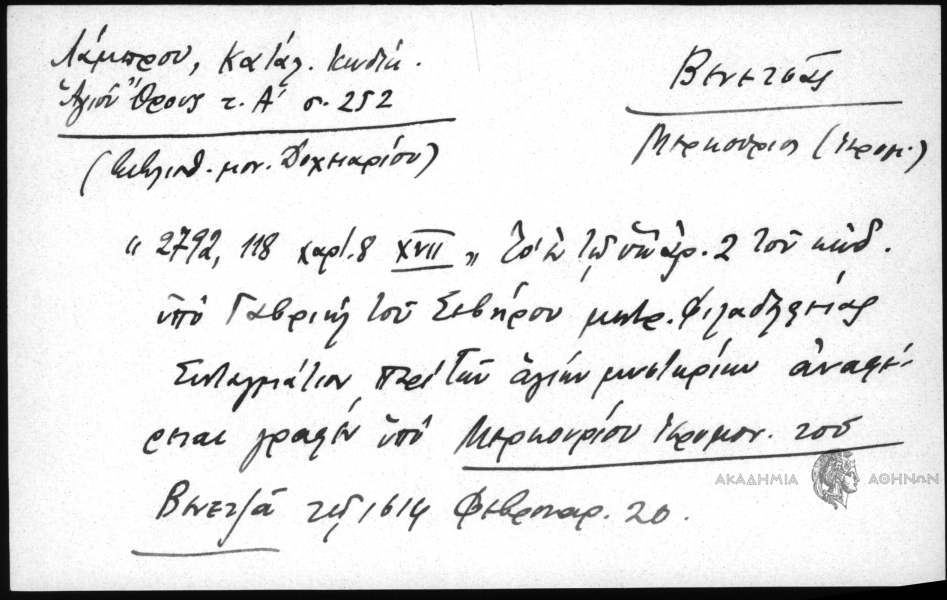 Λάμπρου, Κατάλ. Κωδίκ.
Ἁγίου Ὄρους τ. Α' σ. 252
(βιβλιοθ. μον. Δοχειαρίου)
Βενετσᾶς
Μερκούριος (ἱερομ.)
« 2792, 118 χαρτ. 8 XVII » Τὸ ἐν τῷ ὑπ' ἀρ. 2 τοῦ κώδ.
ὑπὸ Γαβριὴλ τοῦ Σεβήρου μητρ. Φιλαδελφείας
Συνταγμάτιον περὶ τῶν ἁγίων μυστηρίων ἀναφέ-
ρεται γραφὲν ὑπὸ Μερκουρίου ἱερομον. τοῦ
Βενετζᾶ τῷ 1614 Φεβρουαρ. 20.
ΑΚΑΔΗΜΙΑ ΑΘΗΝΩΝ